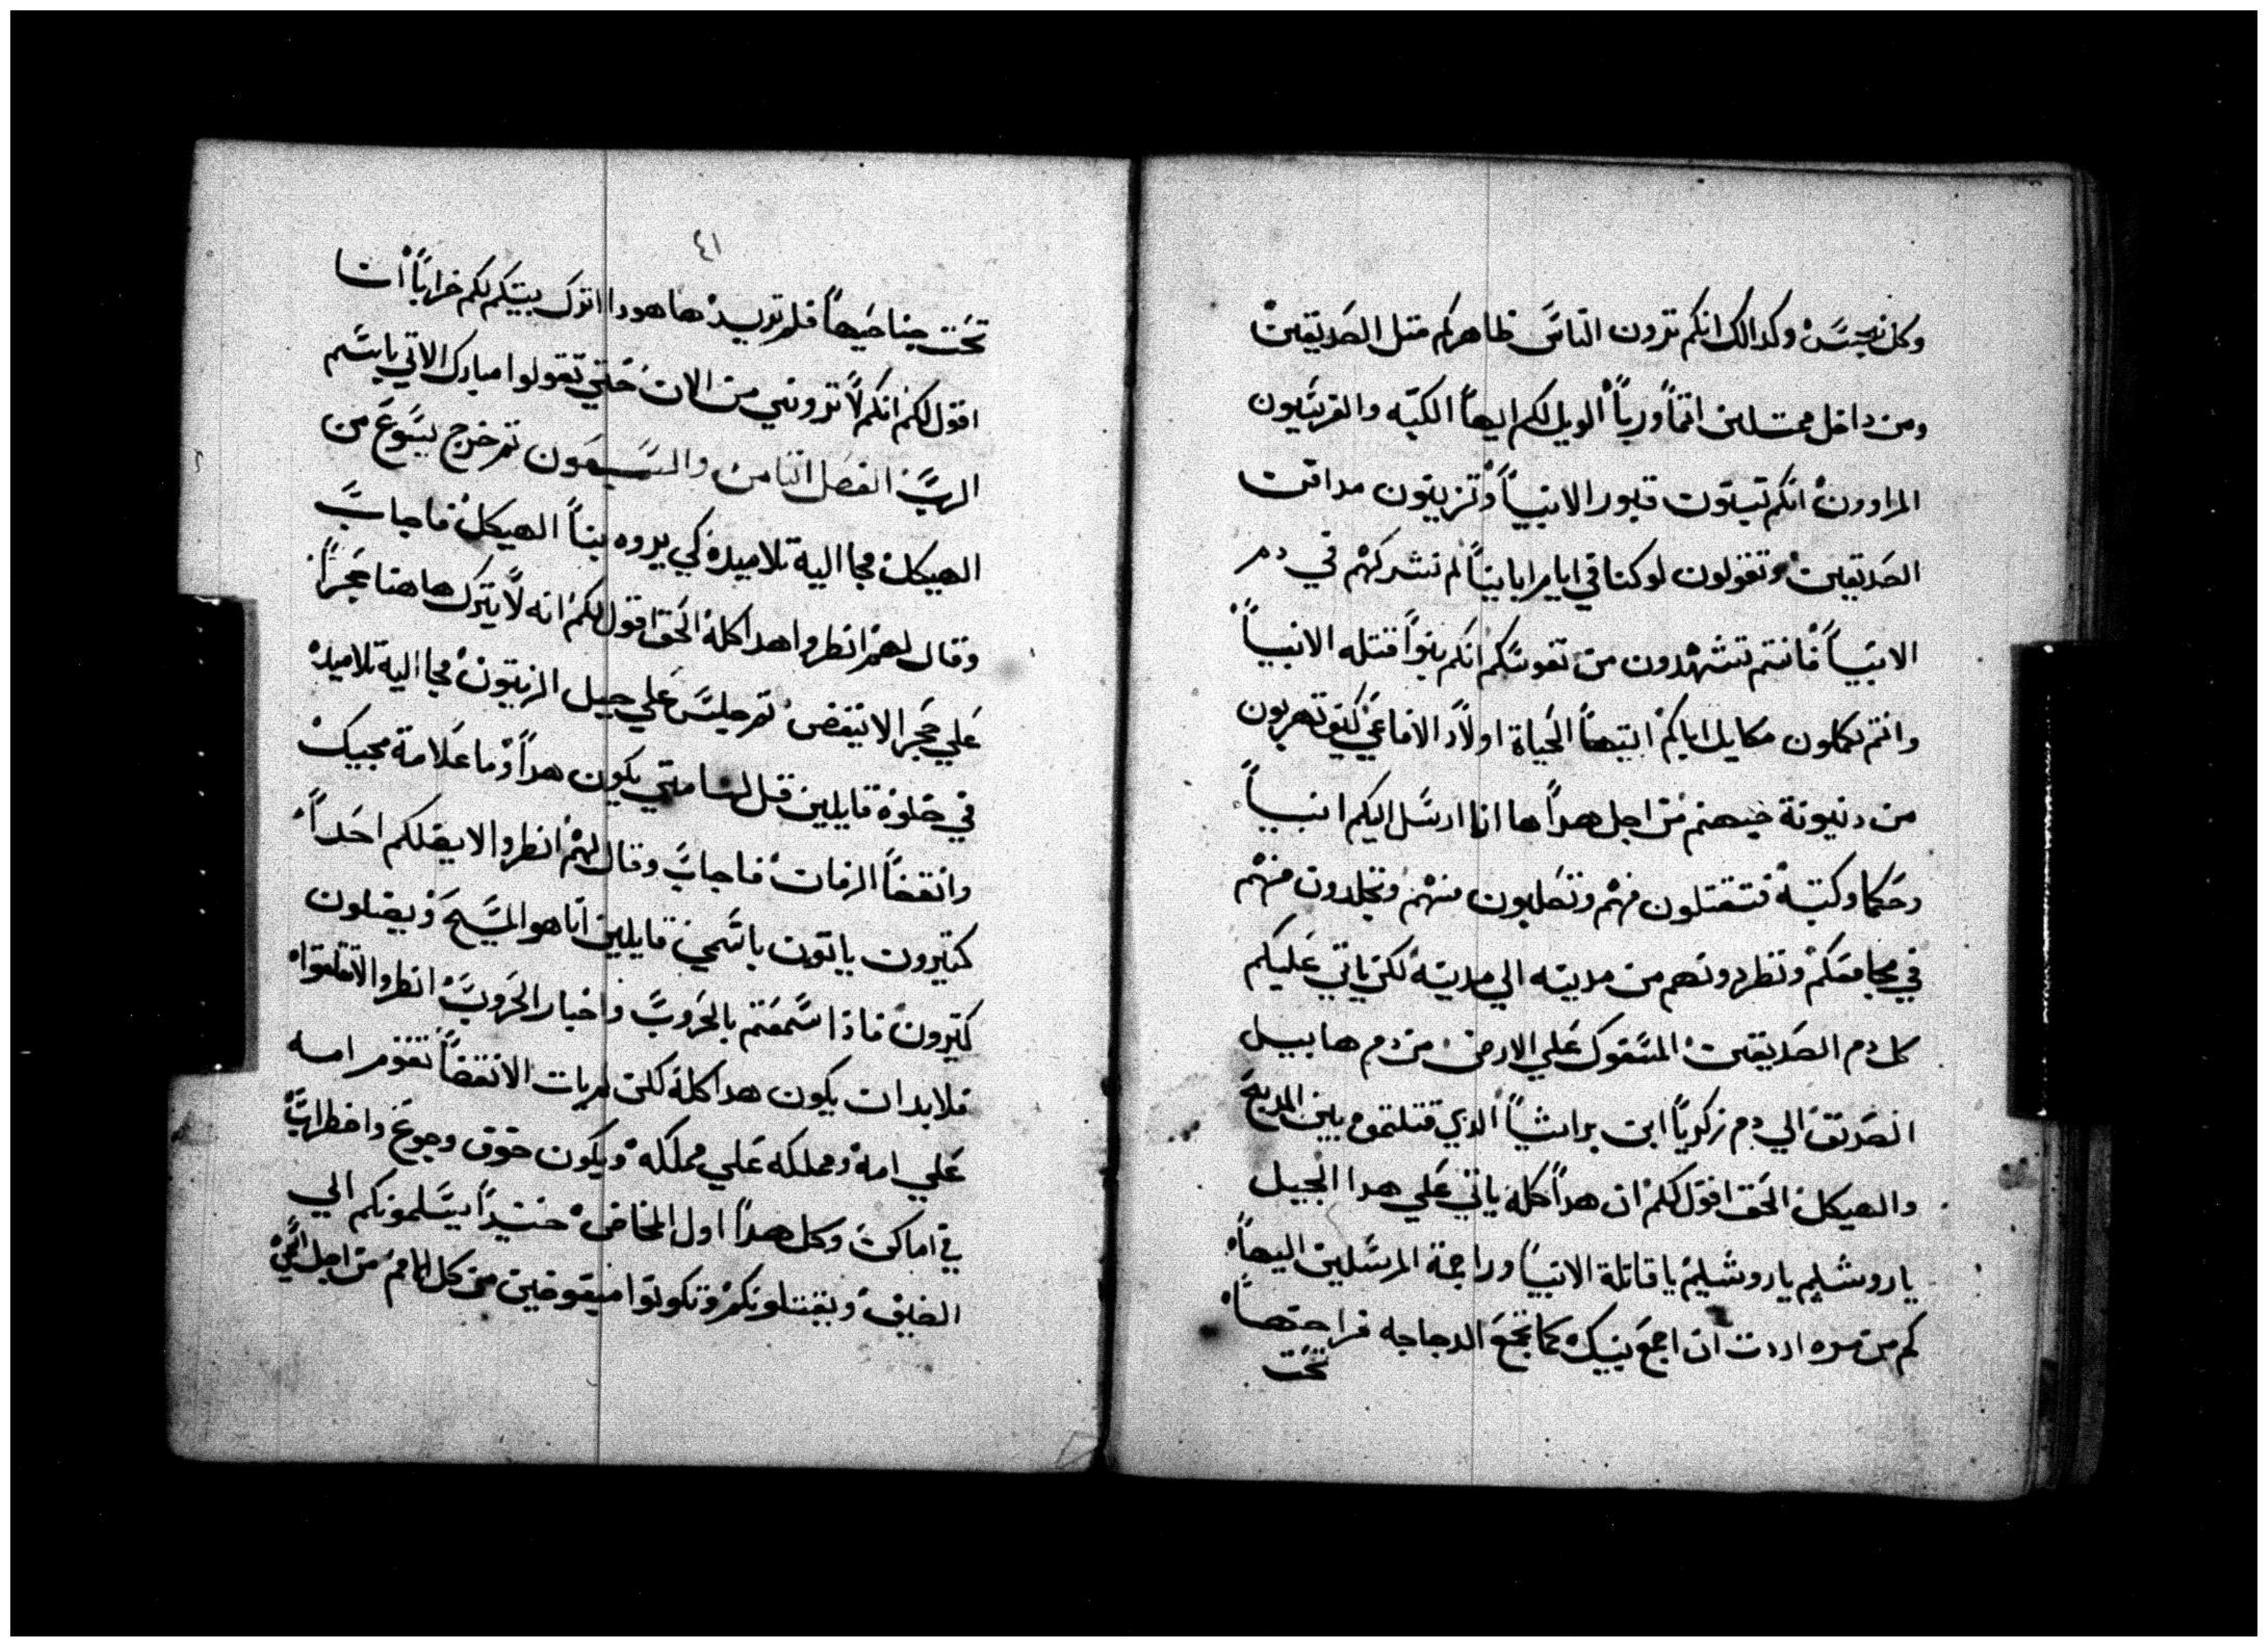 وكل نجسً وكدالك انكم ترون الناسً ظاهركم متل الصديقين
ومن داخل ممتلين اتماً ورياً الويل لكم ايهاً الكتبه والفريسًيون
المراوون انكم تبنون قبور الانبياً وتزينون مدافن
الصديقين وتقولون لو كنا في ايام ابايناً لم نشركهم في دم
الانبياً فانتم تشهدون من نفوسًكم انكم بنواً قتله الانبياً
وانتم تكملون مكايل ابايكم ايتهاً الحياة اولاًد الافاعي كيف تهربون
من دنيونة جهنم من اجل هداً ها انا ارسًل اليكم انبياً
وحكما وكتبة فتقتلون منهم وتصلبون منهم وتجلدون منهم
في مجامعكم وتطردونهم من مدينه الي مدينة لكن ياتي عليكم
كل دم الصديقين المسًفوك علي الارض من دم هابيل
الصديق الي دم زكرياً ابن براشياً الدي قتلتموه بين المدبح
والهيكل الحق اقول لكم ان هداً كله ياتي علي هدا الجيل
ياروشليم ياروشليم يا قاتلة الانبياً وراجمة المرسًلين اليهاً
كم من مره اردت ان اجمع بنيك كما تجمع الدجاجه فراختهاً
تحت
٤١
تحت جناحيهاً فلم تريد ها هودا اترك بيتكم لكم خراباً انا
اقول لكم انكم لاً ترونني من الان حتي تقولوا مبارك الاتي باسًم
الربً الفصل التامن والسًبعون تم خرج يسًوع من
الهيكل فجا اليه تلاميده كي يروه بناً الهيكل فاجابً
وقال لهم انظروا هدا كلة الحق اقول لكم انه لاً يترك هاهنا حجراً
علي حجر الا ينقض تم جلسً علي جبل الزيتون فجا اليه تلاميده
في خلوة قايلين قل لنا متي يكون هداً وما علامة مجيك
وانقضاً الزمان فاجابً وقال لهم انظروا لا يضلكم احداً
كتيرون ياتون باسًمي قايلين انا هو المسًيح ويضلون
كتيرون فاذا سًمعتم بالحروبً واخبار الحروبً انظروا لا تقلقوا
فلابد ان يكون هدا كلة لكن لم يات الانقضاً تقوم امه
علي امة ومملكه علي مملكه ويكون خوف وجوع واضطراباً
في اماكن وكل هداً اول المخاض حينيداً يسًلمونكم الي
الضيق ويقتلونكم وتكونوا مبغوضين من كل الامم من اجل اسمي